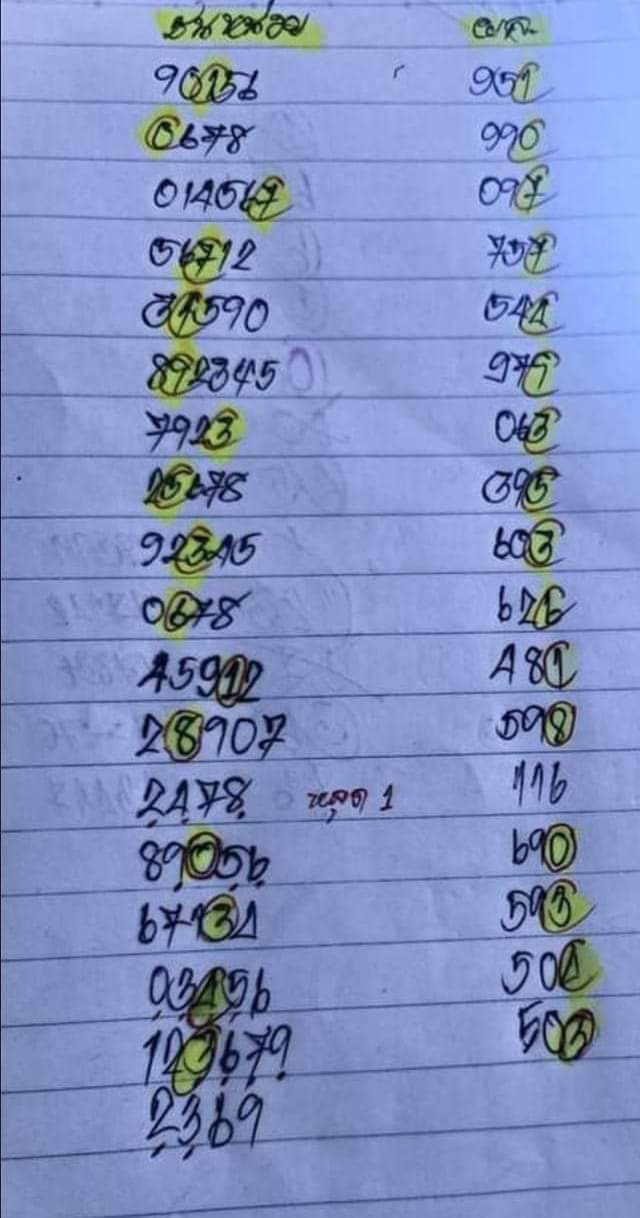 90156 951
0678 990
014567 097
56712 757
31590 541
892345 971
7923 063
25678 395
92345 603
0678 626
45912 481
28907 598
2478 หลุด 1 116
89056 690
67134 593
03456 504
123679 503
2369